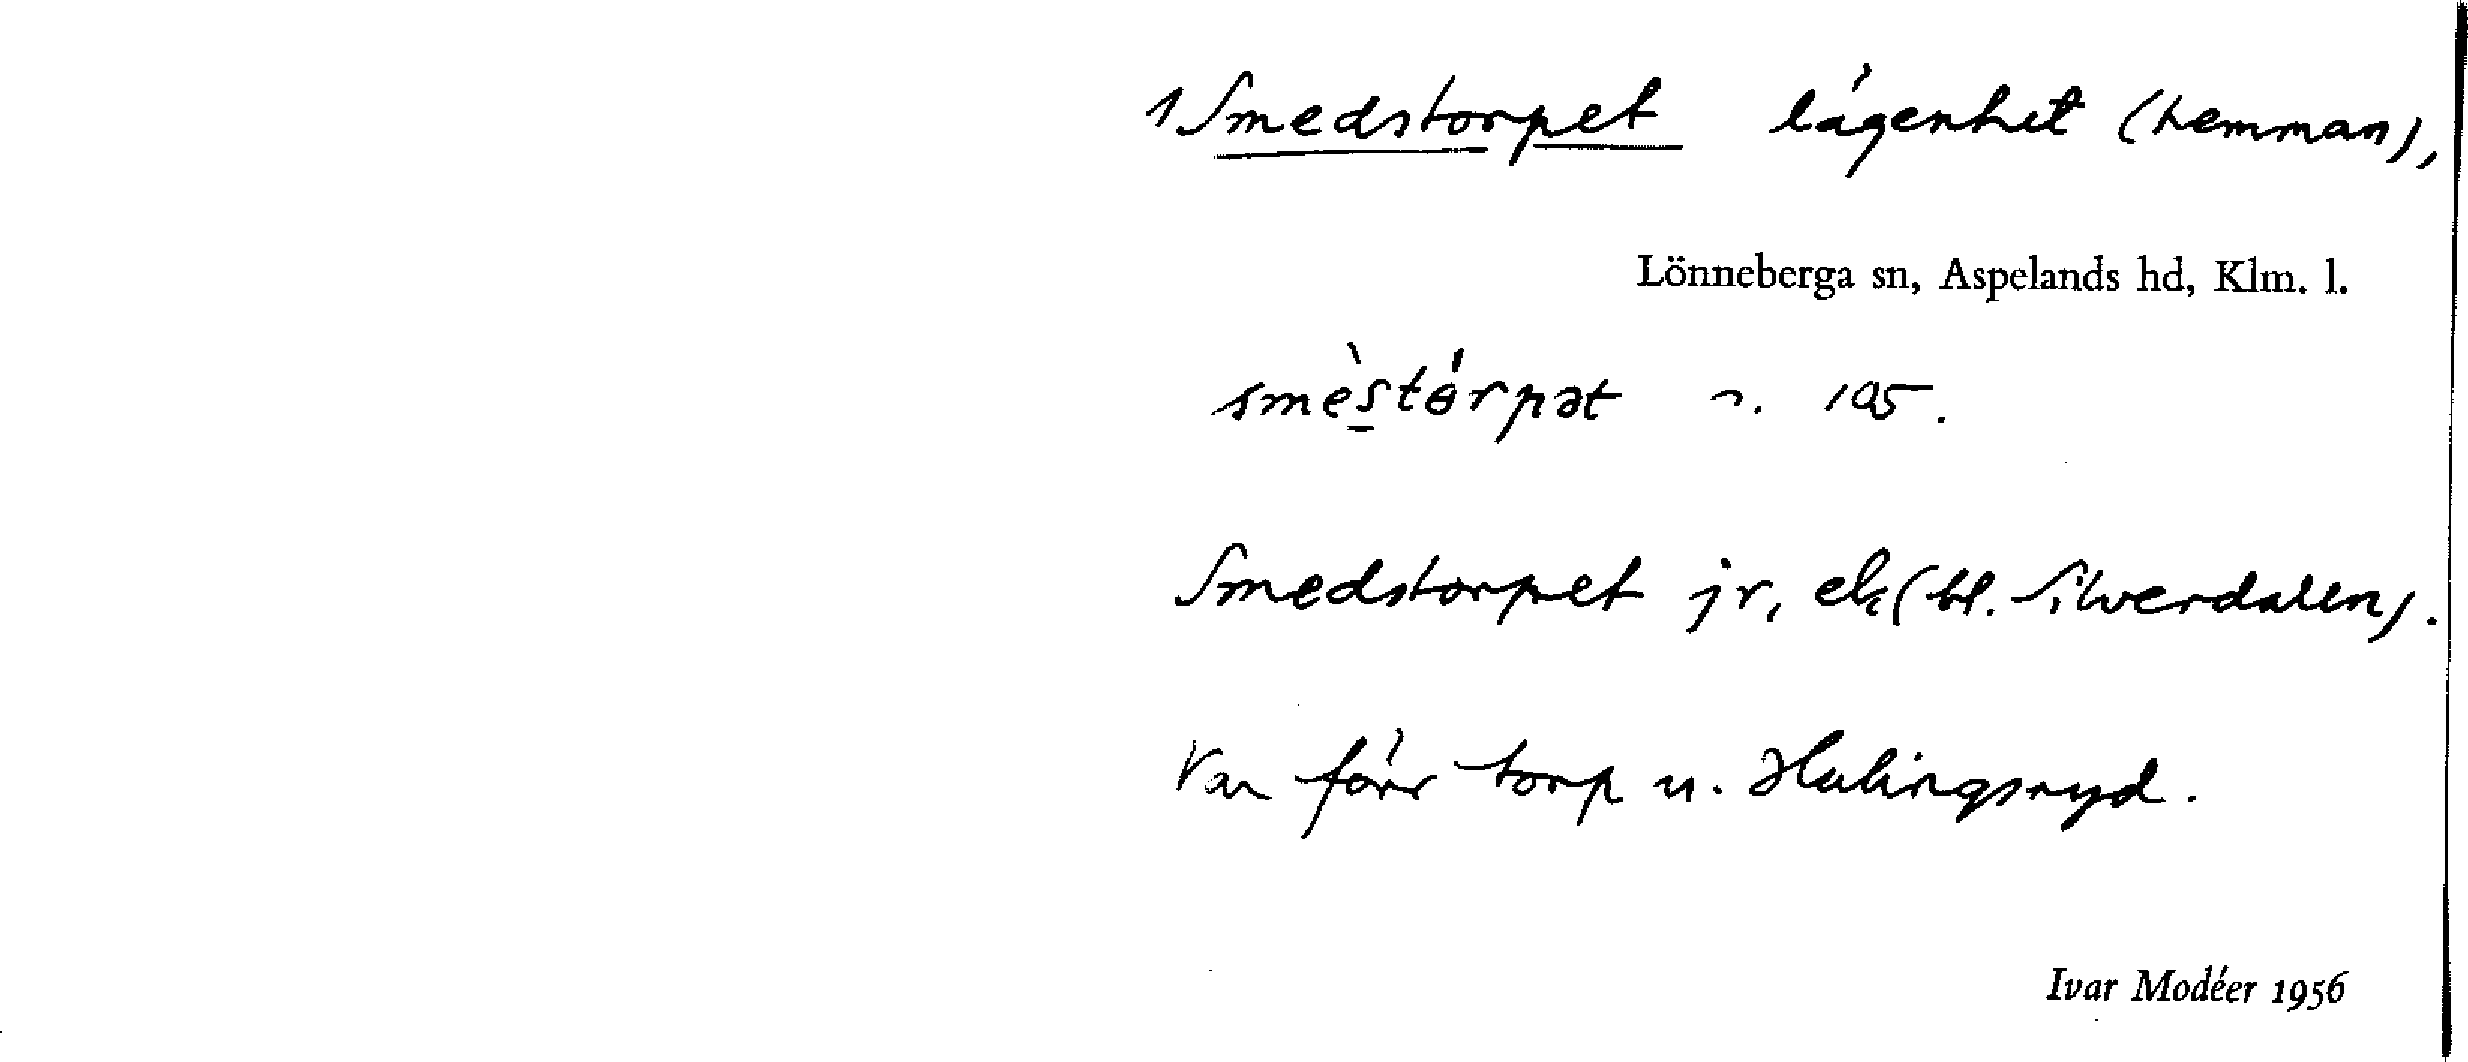 1 Smedstorpet lägenhet (hemman),
Lönneberga sn, Aspelands hd, Klm. l.
smèstórpət n. 105.
Smedstorpet jr, ek (bl. Silverdalen).
Var förr torp u. Hulingsryd.
Ivar Modéer 1956